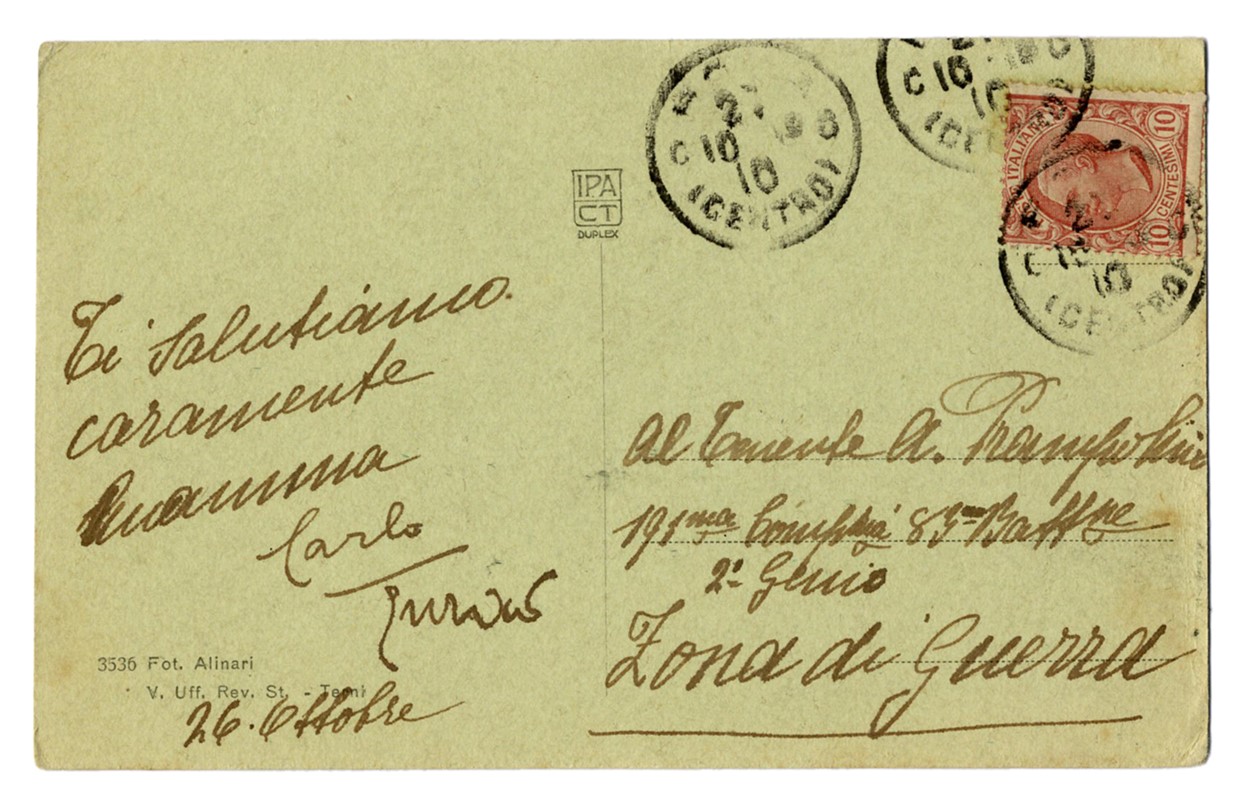 IPA
CT
DUPLEX
Ti salutiamo
caramente
mamma
Carlo
3536 Fot. Alinari
V. Uff. Rev. St. - Terni
26. Ottobre
27
C 10 19 8
10
(CENTRO)
C 10 19
10
ITALIANE
10 CENTESIMI 10
C
10
(CENTRO)
Al Tenente A. Prampolini
191ma Compia 83 Battne
2º Genio
Zona di Guerra